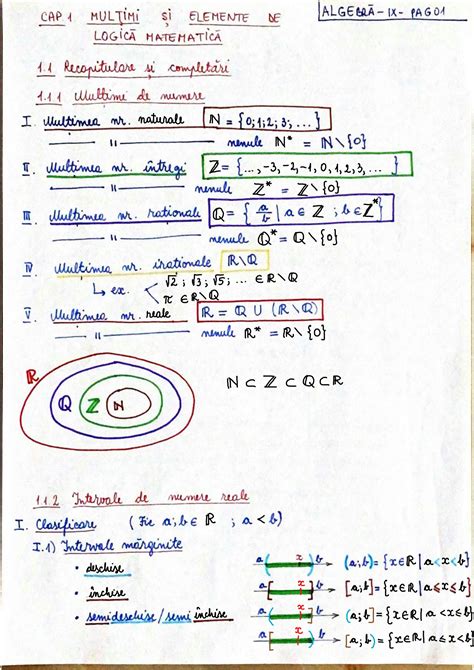 CAP.1 MULȚIMI ȘI ELEMENTE DE
LOGICĂ MATEMATICĂ
ALGEBRĂ - IX - PAG 01
1.1 Recapitulare și completări
1.1.1 Mulțimi de numere
I. Mulțimea nr. naturale ℕ = {0;1;2;3;...}
—— 〃 —— nenule ℕ* = ℕ\{0}
II. Mulțimea nr. întregi ℤ = {...,-3,-2,-1,0,1,2,3,...}
—— 〃 —— nenule ℤ* = ℤ\{0}
III. Mulțimea nr. raționale ℚ = { a/b | a∈ℤ ; b∈ℤ*}
—— 〃 —— nenule ℚ* = ℚ\{0}
IV. Mulțimea nr. iraționale ℝ\ℚ
↳ ex. < √2 ; √3 ; √5 ; ... ∈ ℝ\ℚ
π ∈ ℝ\ℚ
V. Mulțimea nr. reale ℝ = ℚ ∪ (ℝ\ℚ)
—— 〃 —— nenule ℝ* = ℝ\{0}
ℝ ℚ ℤ ℕ
ℕ ⊂ ℤ ⊂ ℚ ⊂ ℝ
1.1.2 Intervale de numere reale
I. Clasificare (Fie a;b ∈ ℝ ; a < b)
I.1) Intervale mărginite
• deschise a ( x ) b → (a;b) = {x∈ℝ | a<x<b}
• închise a [ x ] b → [a;b] = {x∈ℝ | a≤x≤b}
• semideschise / semi închise a ( x ] b → (a;b] = {x∈ℝ | a<x≤b}